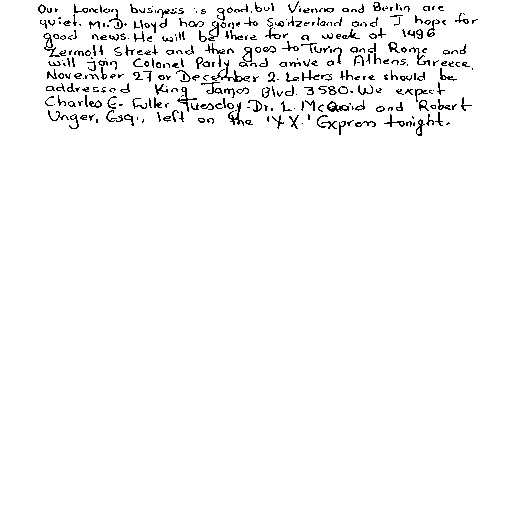 Our London business is good, but Vienna and Berlin are
quiet. Mr. D. Lloyd has gone to Switzerland and I hope for
good news. He will be there for a week at 1496
Zermott Street and then goes to Turin and Rome and
will join Colonel Party and arrive at Athens, Greece,
November 27 or December 2. Letters there should be
addressed King James Blvd. 3580. We expect
Charles E. Fuller Tuesday. Dr. L. McQuaid and Robert
Unger, Esq., left on the 'Y.X.' Express tonight.